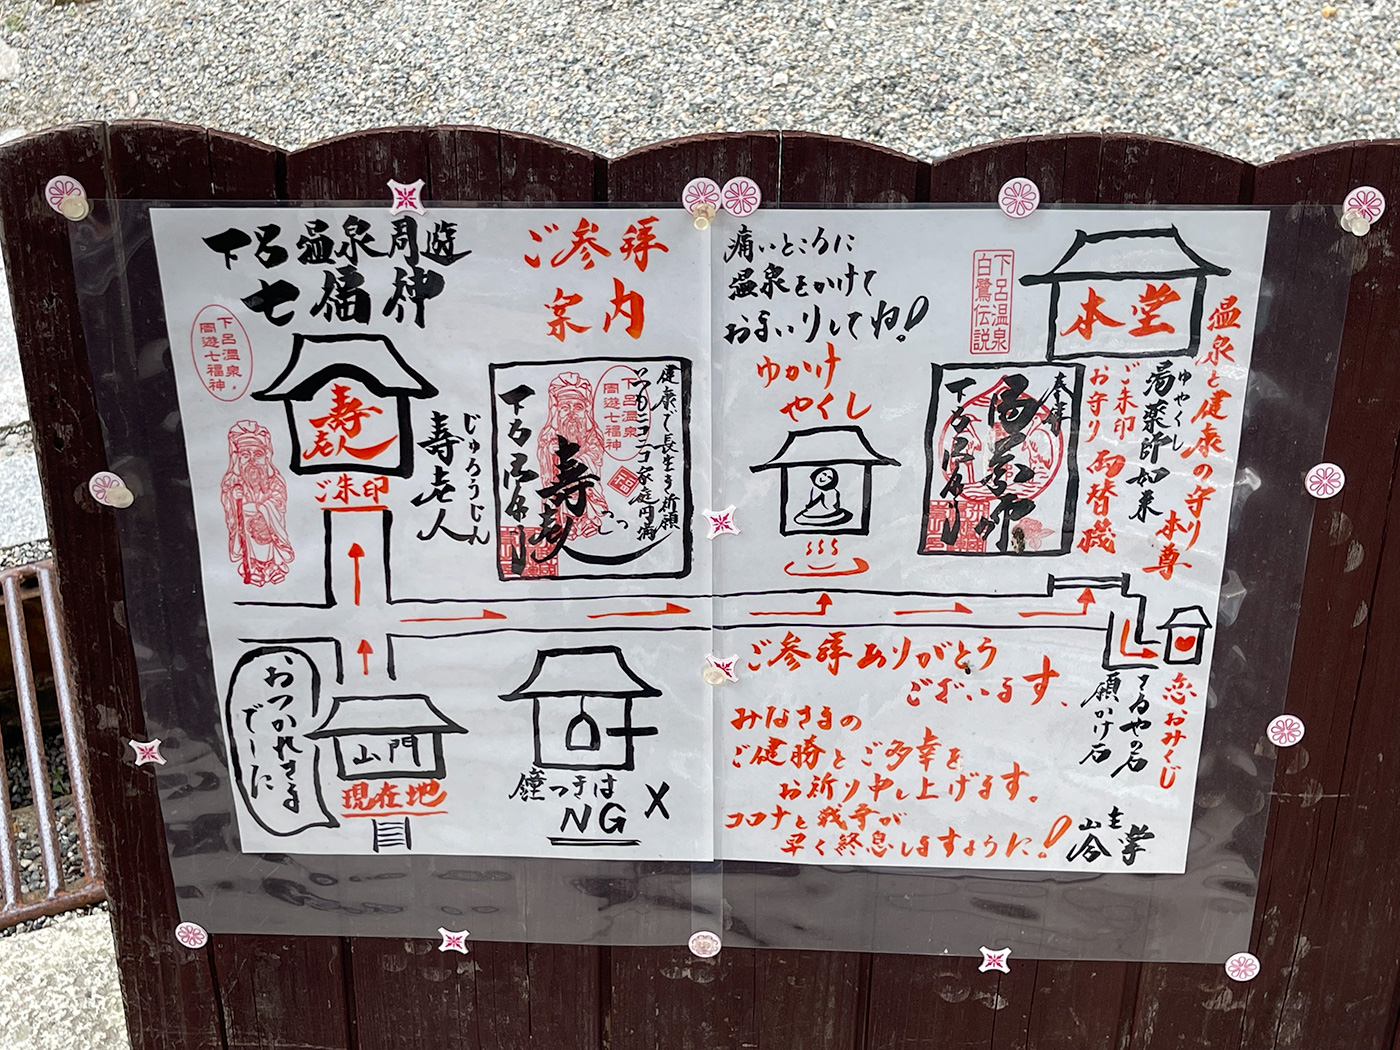 下呂温泉周遊
七福神
ご参拝
案内
下呂温泉
周遊七福神
寿
老人
ご朱印
じゅろうじん
寿老人
健康で長生き祈願
いつもニコニコ家庭円満
下呂温泉
周遊七福神
福
寿老人
下呂温泉
痛いところに
温泉をかけて
お参りしてね!
ゆかけ
やくし
下呂温泉
白鷺伝説
本堂
温泉と健康の守り
本尊
ゆやくし
湯薬師如来
ご朱印
お守り
両替機
奉拝
湯薬師
下呂温泉
おつかれさま
でーす
山門
現在地
鐘つきは
NG X
ご参拝ありがとう
ございます、
みなさまの
ご健勝とご多幸を
お祈り申し上げます。
コロナと戦争が
早く終息しますように!
恋おみくじ
さるやの石
願かけ石